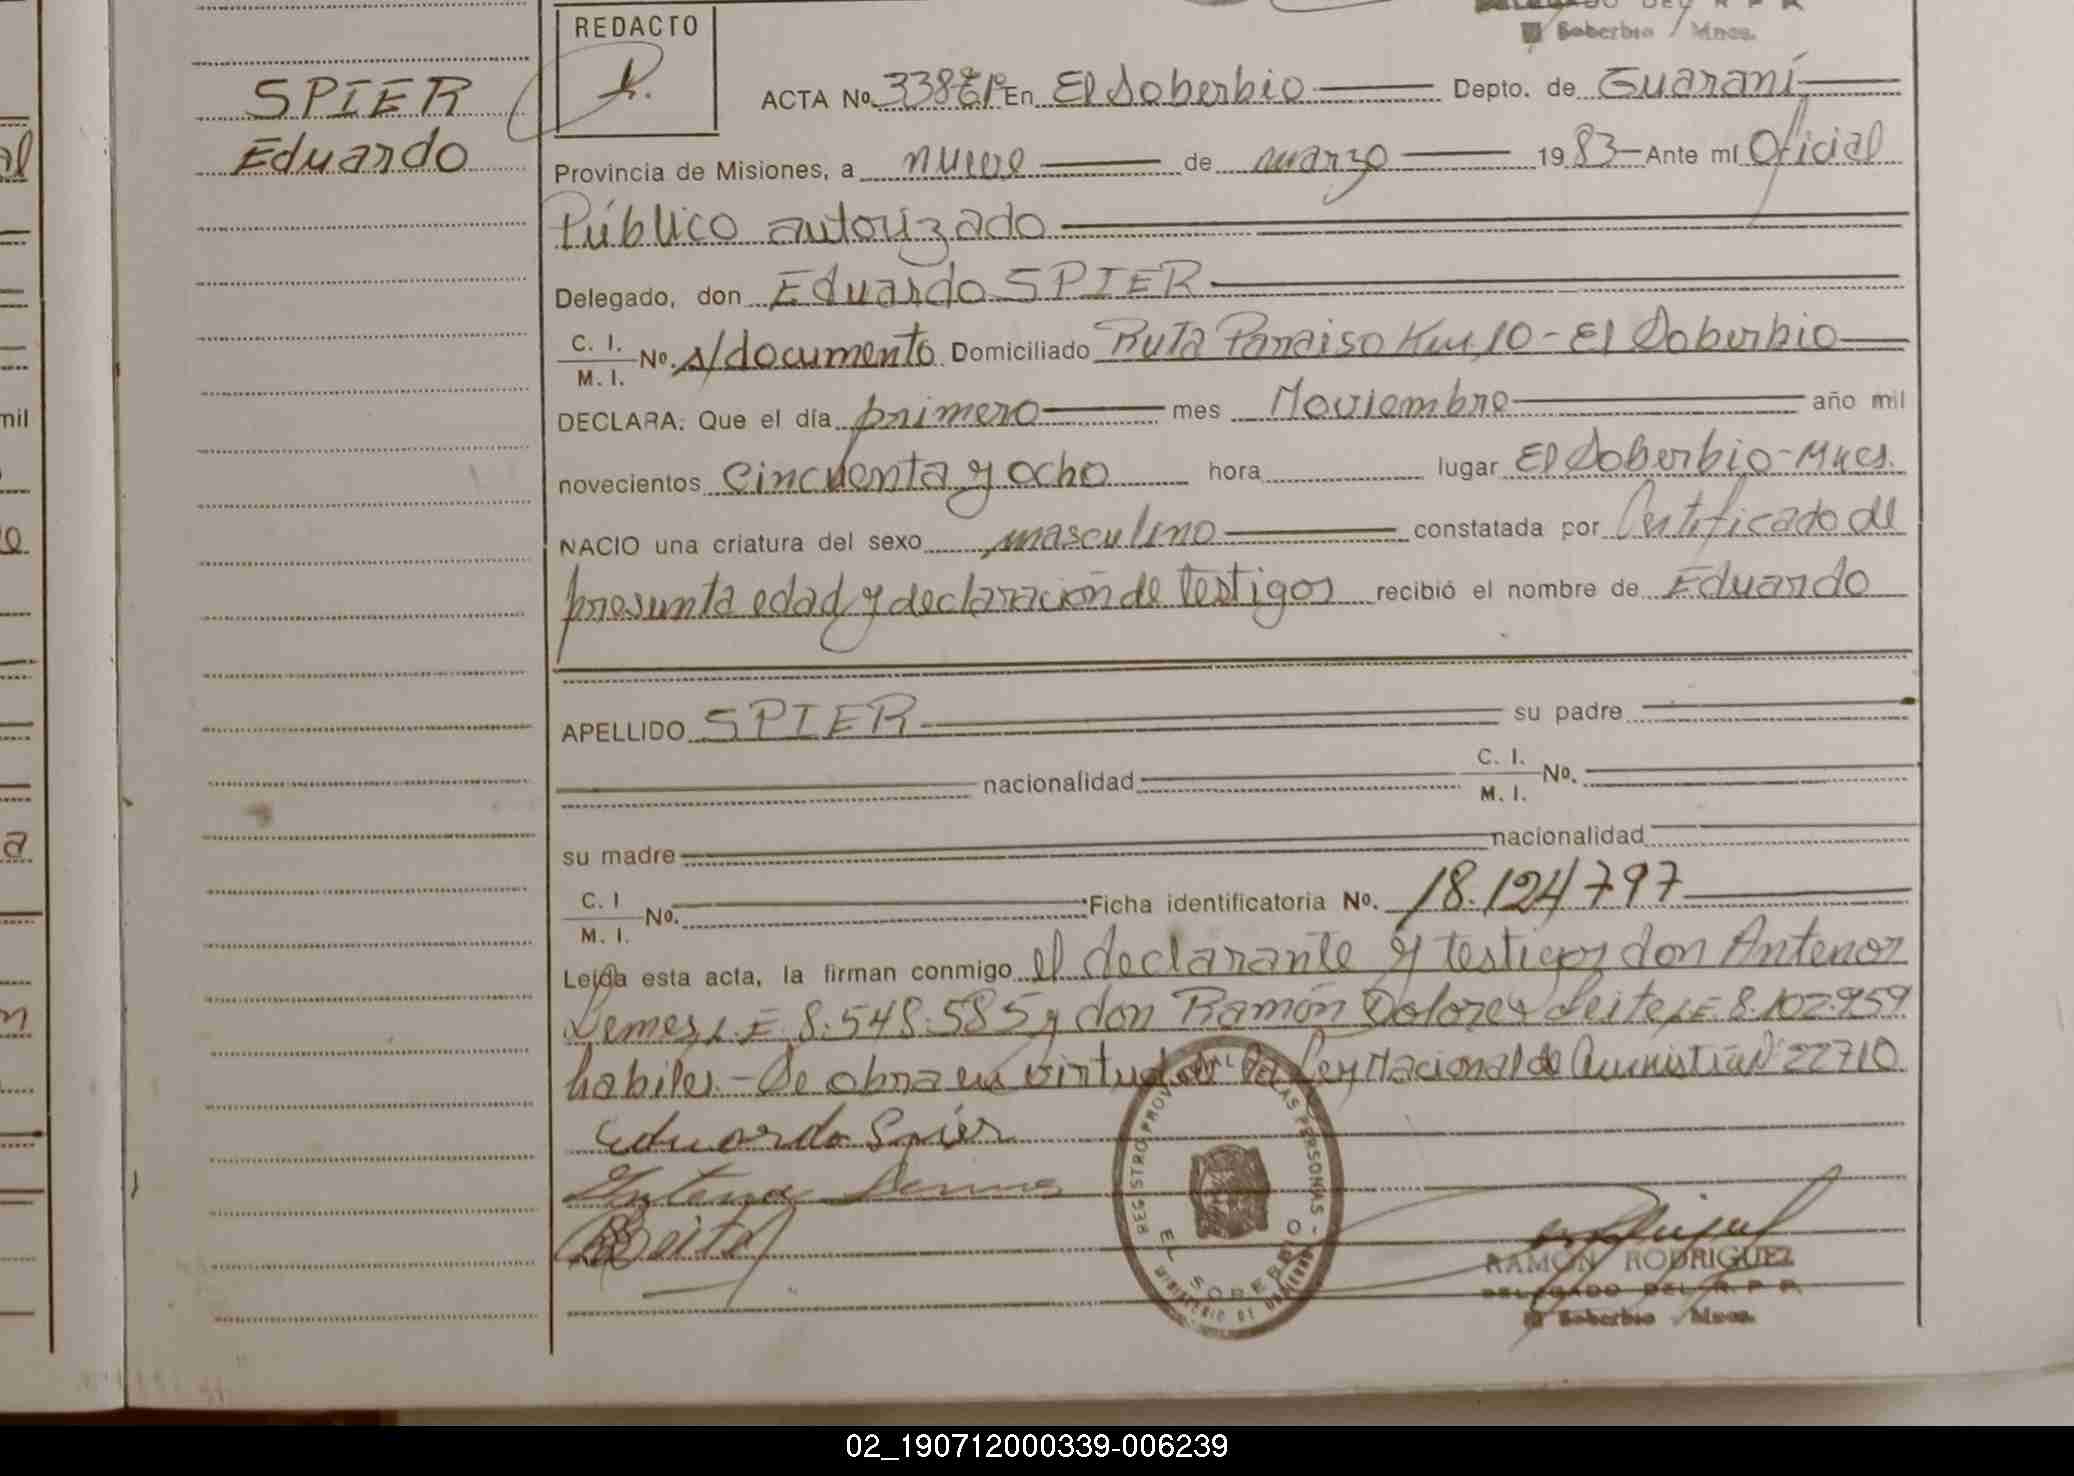 REDACTO
Soberbio / Mnes.
SPIER
Eduardo
ACTA No. 338 En El Soberbio Depto. de Guaraní
Provincia de Misiones, a nueve de marzo 1983 Ante mí Oficial
Público autorizado
Delegado, don Eduardo SPIER
C. I.
M. I. No. s/documento Domiciliado Ruta Paraiso Km 10 - El Soberbio
DECLARA: Que el día primero mes Noviembre año mil
novecientos cincuenta y ocho hora lugar El Soberbio - Mnes.
NACIO una criatura del sexo masculino constatada por Certificado de
presunta edad y declaración de testigos recibió el nombre de Eduardo
APELLIDO SPIER su padre
nacionalidad C. I.
M. I. No.
su madre nacionalidad
C. I
M. I. No. Ficha identificatoria No. 18.124797
Leída esta acta, la firman conmigo el declarante y testigos don Antenor
Lemes L.E 8.548.585 y don Ramón Dolores Leite L.E 8.102.959
habiles. - Se obra en virtud de la Ley Nacional de Amnistia Nº 22710
Eduardo Spier
Antenor Lemes
Leite
REGISTRO PROVINCIAL DE LAS PERSONAS -
EL SOBERBIO
MINISTERIO DE GOBIERNO
RAMON RODRIGUEZ
DELEGADO DEL R. P. P.
El Soberbio / Mnes.
02_190712000339-006239